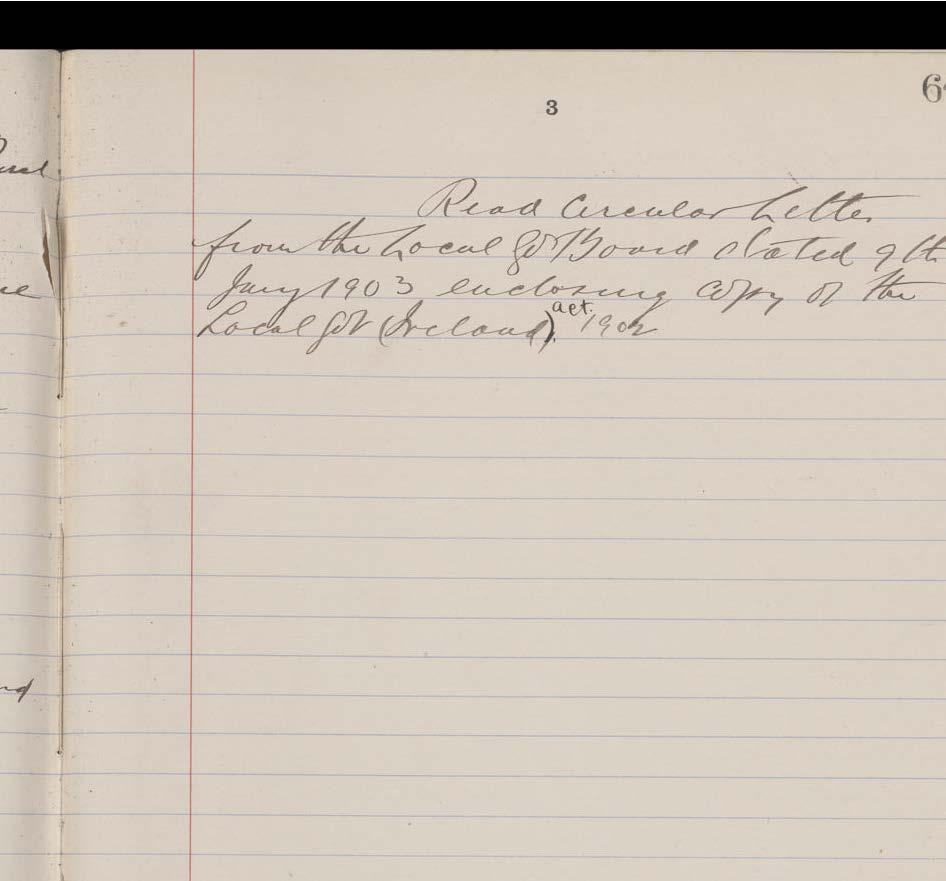 3
Read Circular Letter
from the Local Govt Board dated 9th
Jany 1903 enclosing copy of the
Local Govt (Ireland) act. 1902